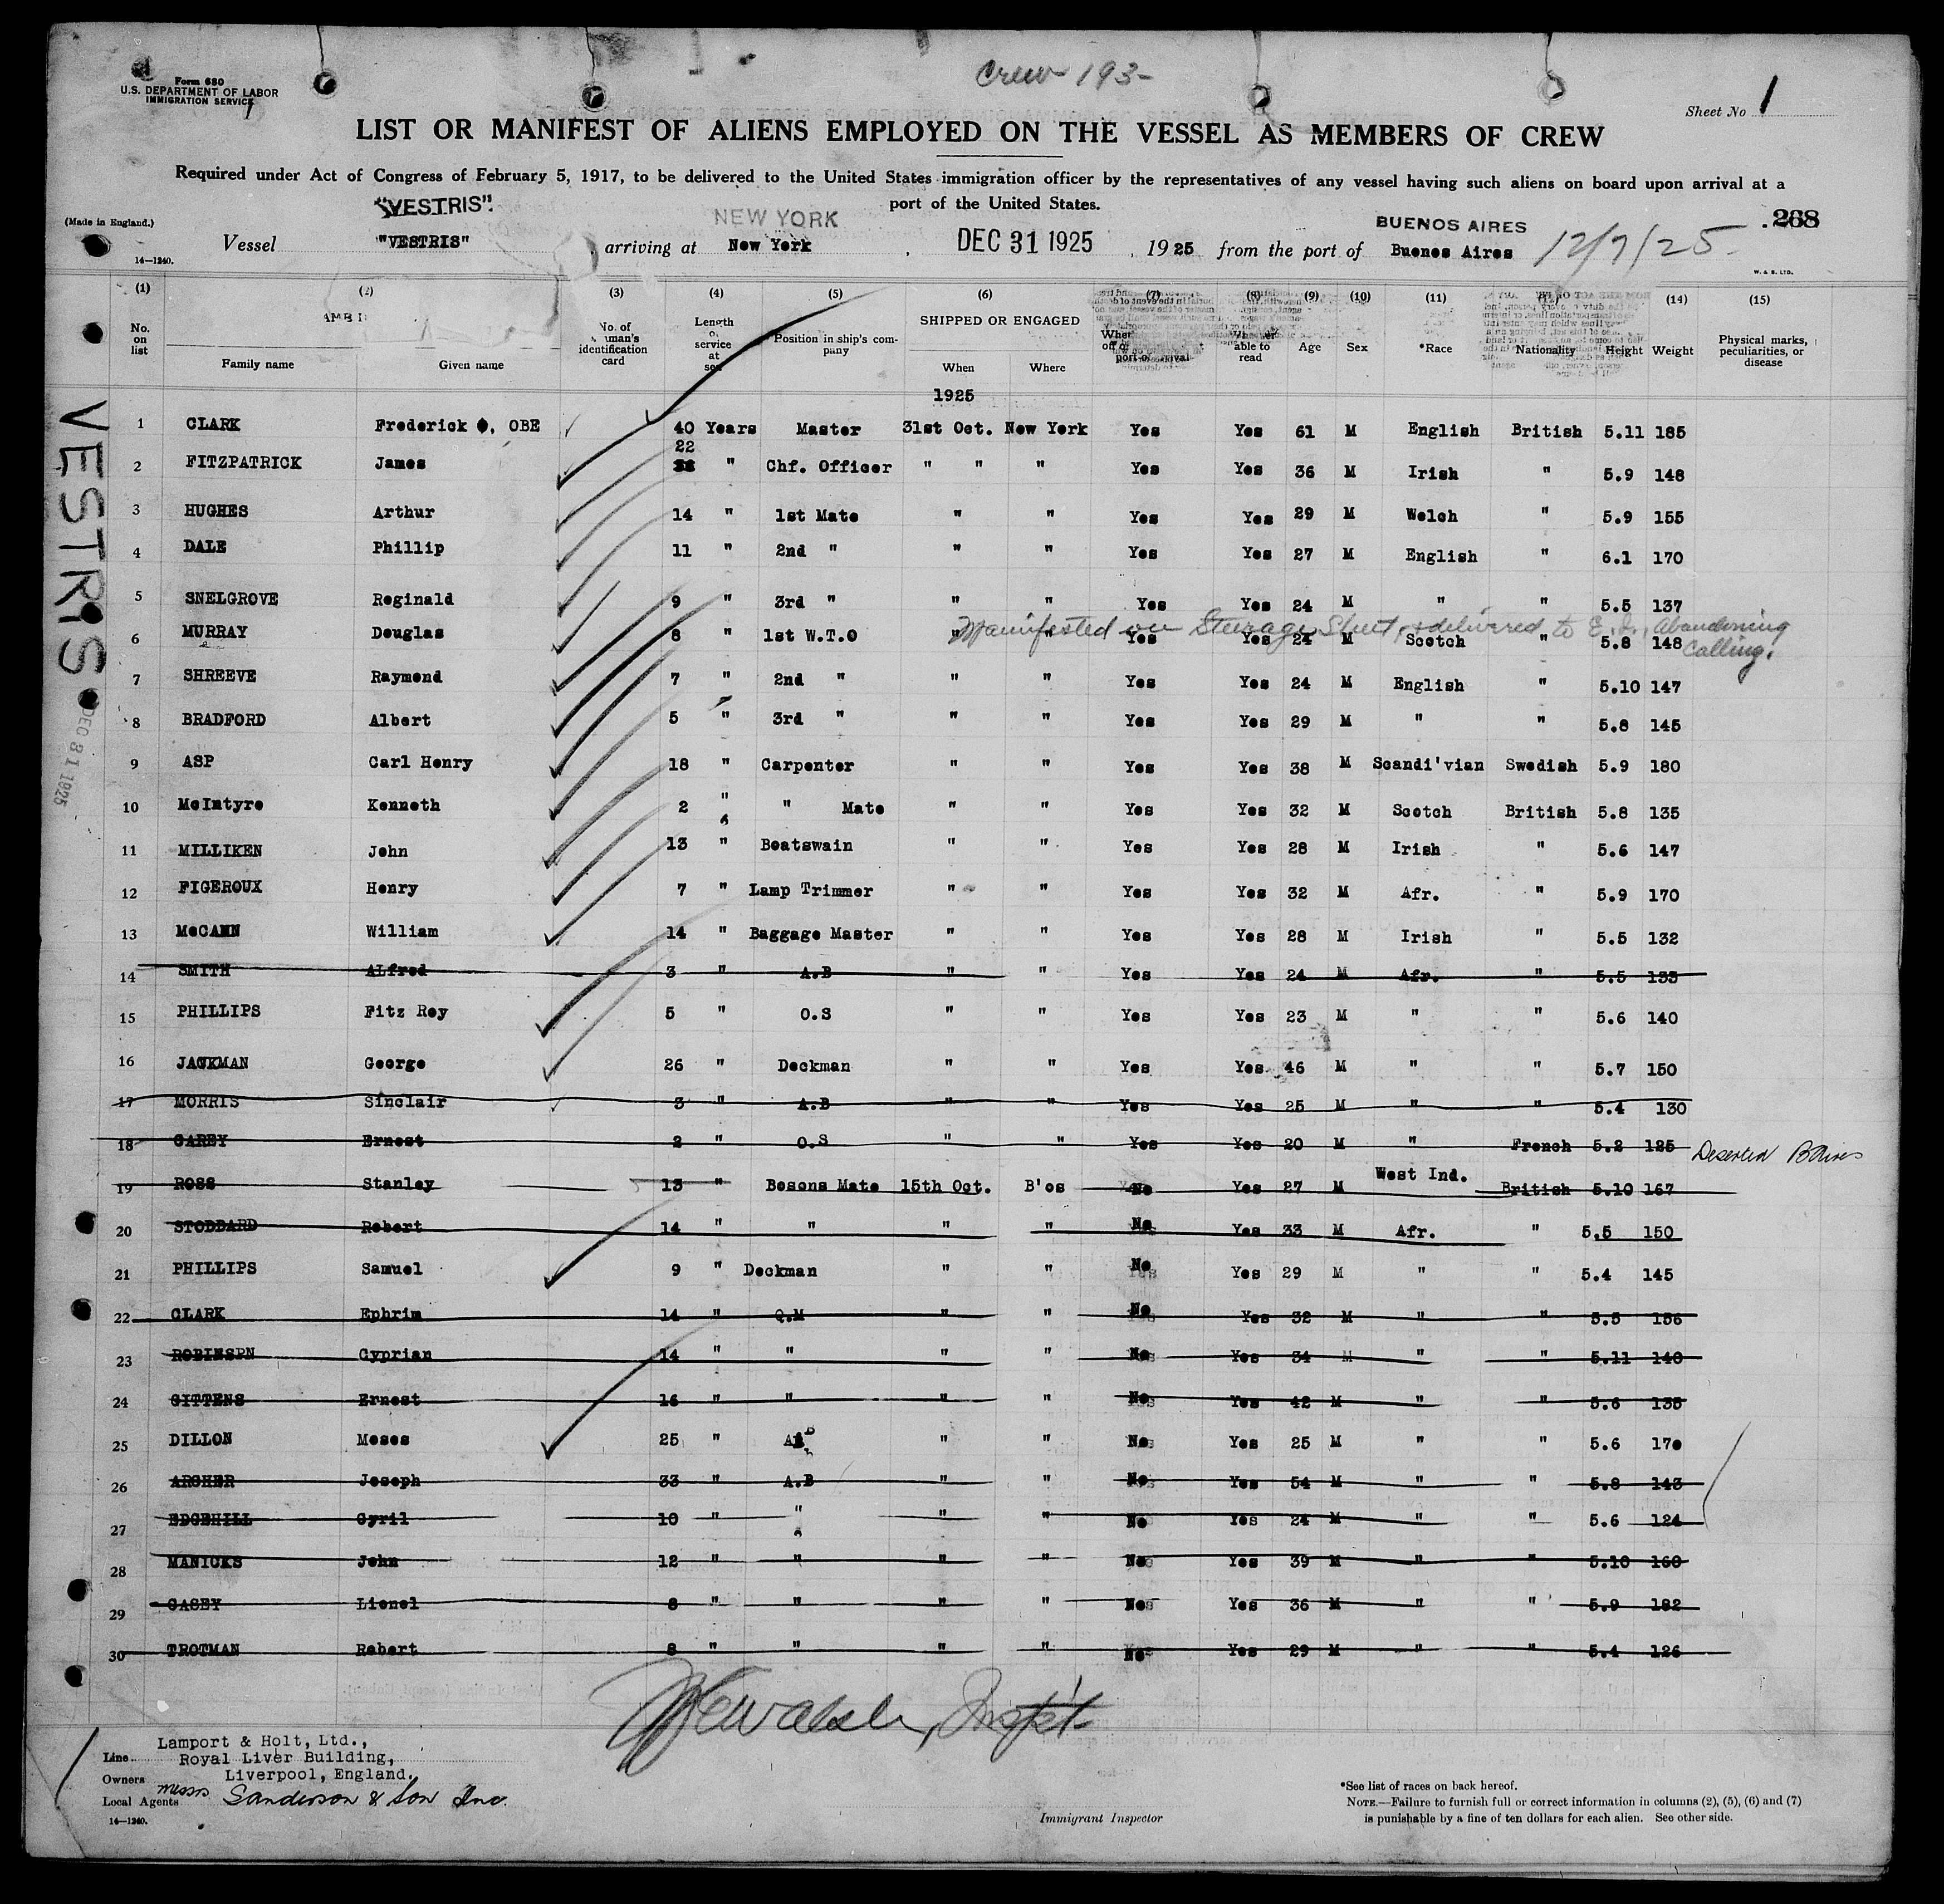 Crew 193-
Form 680
U.S. DEPARTMENT OF LABOR
IMMIGRATION SERVICE
Sheet No 1
LIST OR MANIFEST OF ALIENS EMPLOYED ON THE VESSEL AS MEMBERS OF CREW
Required under Act of Congress of February 5, 1917, to be delivered to the United States immigration officer by the representatives of any vessel having such aliens on board upon arrival at a
port of the United States.
(Made in England.)
"VESTRIS" NEW YORK BUENOS AIRES 268
Vessel "VESTRIS" arriving at New York, DEC 31 1925, 1925 from the port of Buenos Aires 12/7/25
14—1240. W. & S. LTD.
(1) (2) (3) (4) (5) (6) (7) (8) (9) (10) (11) (14) (15)
No. on list Family name Given name No. of identification card Length of service at sea Position in ship's company SHIPPED OR ENGAGED When Where able to read Age Sex *Race Nationality Height Weight Physical marks, peculiarities, or disease
1925
1 CLARK Frederick, OBE 40 Years Master 31st Oct. New York Yes Yes 61 M English British 5.11 185
2 FITZPATRICK James 22 " Chf. Officer " " " Yes Yes 36 M Irish " 5.9 148
3 HUGHES Arthur 14 " 1st Mate " " Yes Yes 29 M Welch " 5.9 155
4 DALE Phillip 11 " 2nd " " " Yes Yes 27 M English " 6.1 170
5 SNELGROVE Reginald 9 " 3rd " " " Yes Yes 24 M " " 5.5 137
Manifested on Steerage Sheet, delivered to Abandoning Calling.
6 MURRAY Douglas 8 " 1st W.T.O " " Yes Yes 24 M Scotch " 5.8 148
7 SHREEVE Raymond 7 " 2nd " " " Yes Yes 24 M English " 5.10 147
8 BRADFORD Albert 5 " 3rd " " " Yes Yes 29 M " " 5.8 145
9 ASP Carl Henry 18 " Carpenter " " Yes Yes 38 M Scandi'vian Swedish 5.9 180
10 McIntyre Kenneth 2 " " Mate " " Yes Yes 32 M Scotch British 5.8 135
11 MILLIKEN John 13 " Boatswain " " Yes Yes 28 M Irish " 5.6 147
12 FIGEROUX Henry 7 " Lamp Trimmer " " Yes Yes 32 M Afr. " 5.9 170
13 McCANN William 14 " Baggage Master " " Yes Yes 28 M Irish " 5.5 132
14 SMITH ALfred 3 " A.B " " Yes Yes 24 M Afr. " 5.5 133
15 PHILLIPS Fitz Roy 5 " O.S " " Yes Yes 23 M " " 5.6 140
16 JACKMAN George 26 " Deckman " " Yes Yes 46 M " " 5.7 150
17 MORRIS Sinclair 3 " A.B " " Yes Yes 25 M " " 5.4 130
18 CAREY Ernest 2 " O.S " " Yes Yes 20 M " French 5.2 125 Deserted BAires
19 ROSS Stanley 13 " Bosons Mate 15th Oct. B'os No Yes 27 M West Ind. British 5.10 167
20 STODDARD Robert 14 " " " " No Yes 33 M Afr. " 5.5 150
21 PHILLIPS Samuel 9 " Deckman " " No Yes 29 M " " 5.4 145
22 CLARK Ephrim 14 " Q.M " " No Yes 32 M " " 5.5 156
23 ROBINSPN Cyprian 14 " " " " No Yes 34 M " " 5.11 140
24 GITTENS Ernest 16 " " " " No Yes 42 M " " 5.6 135
25 DILLON Moses 25 " AB " " No Yes 25 M " " 5.6 170
26 ARCHER Joseph 33 " A.B " " No Yes 54 M " " 5.8 143
27 EDGEHILL Cyril 10 " " " " No Yes 24 M " " 5.6 124
28 MANICKS John 12 " " " " No Yes 39 M " " 5.10 160
29 CASEY Lionel 8 " " " " No Yes 36 M " " 5.9 182
30 TROTMAN Robert 8 " " " " No Yes 29 M " " 5.4 126
VESTRIS
DEC 31 1925
Inspt.
Line Lamport & Holt, Ltd.,
Royal Liver Building,
Owners Liverpool, England.
Local Agents Messrs Sanderson & Son Inc.
14—1240.
Immigrant Inspector
*See list of races on back hereof.
NOTE.—Failure to furnish full or correct information in columns (2), (5), (6) and (7)
is punishable by a fine of ten dollars for each alien. See other side.